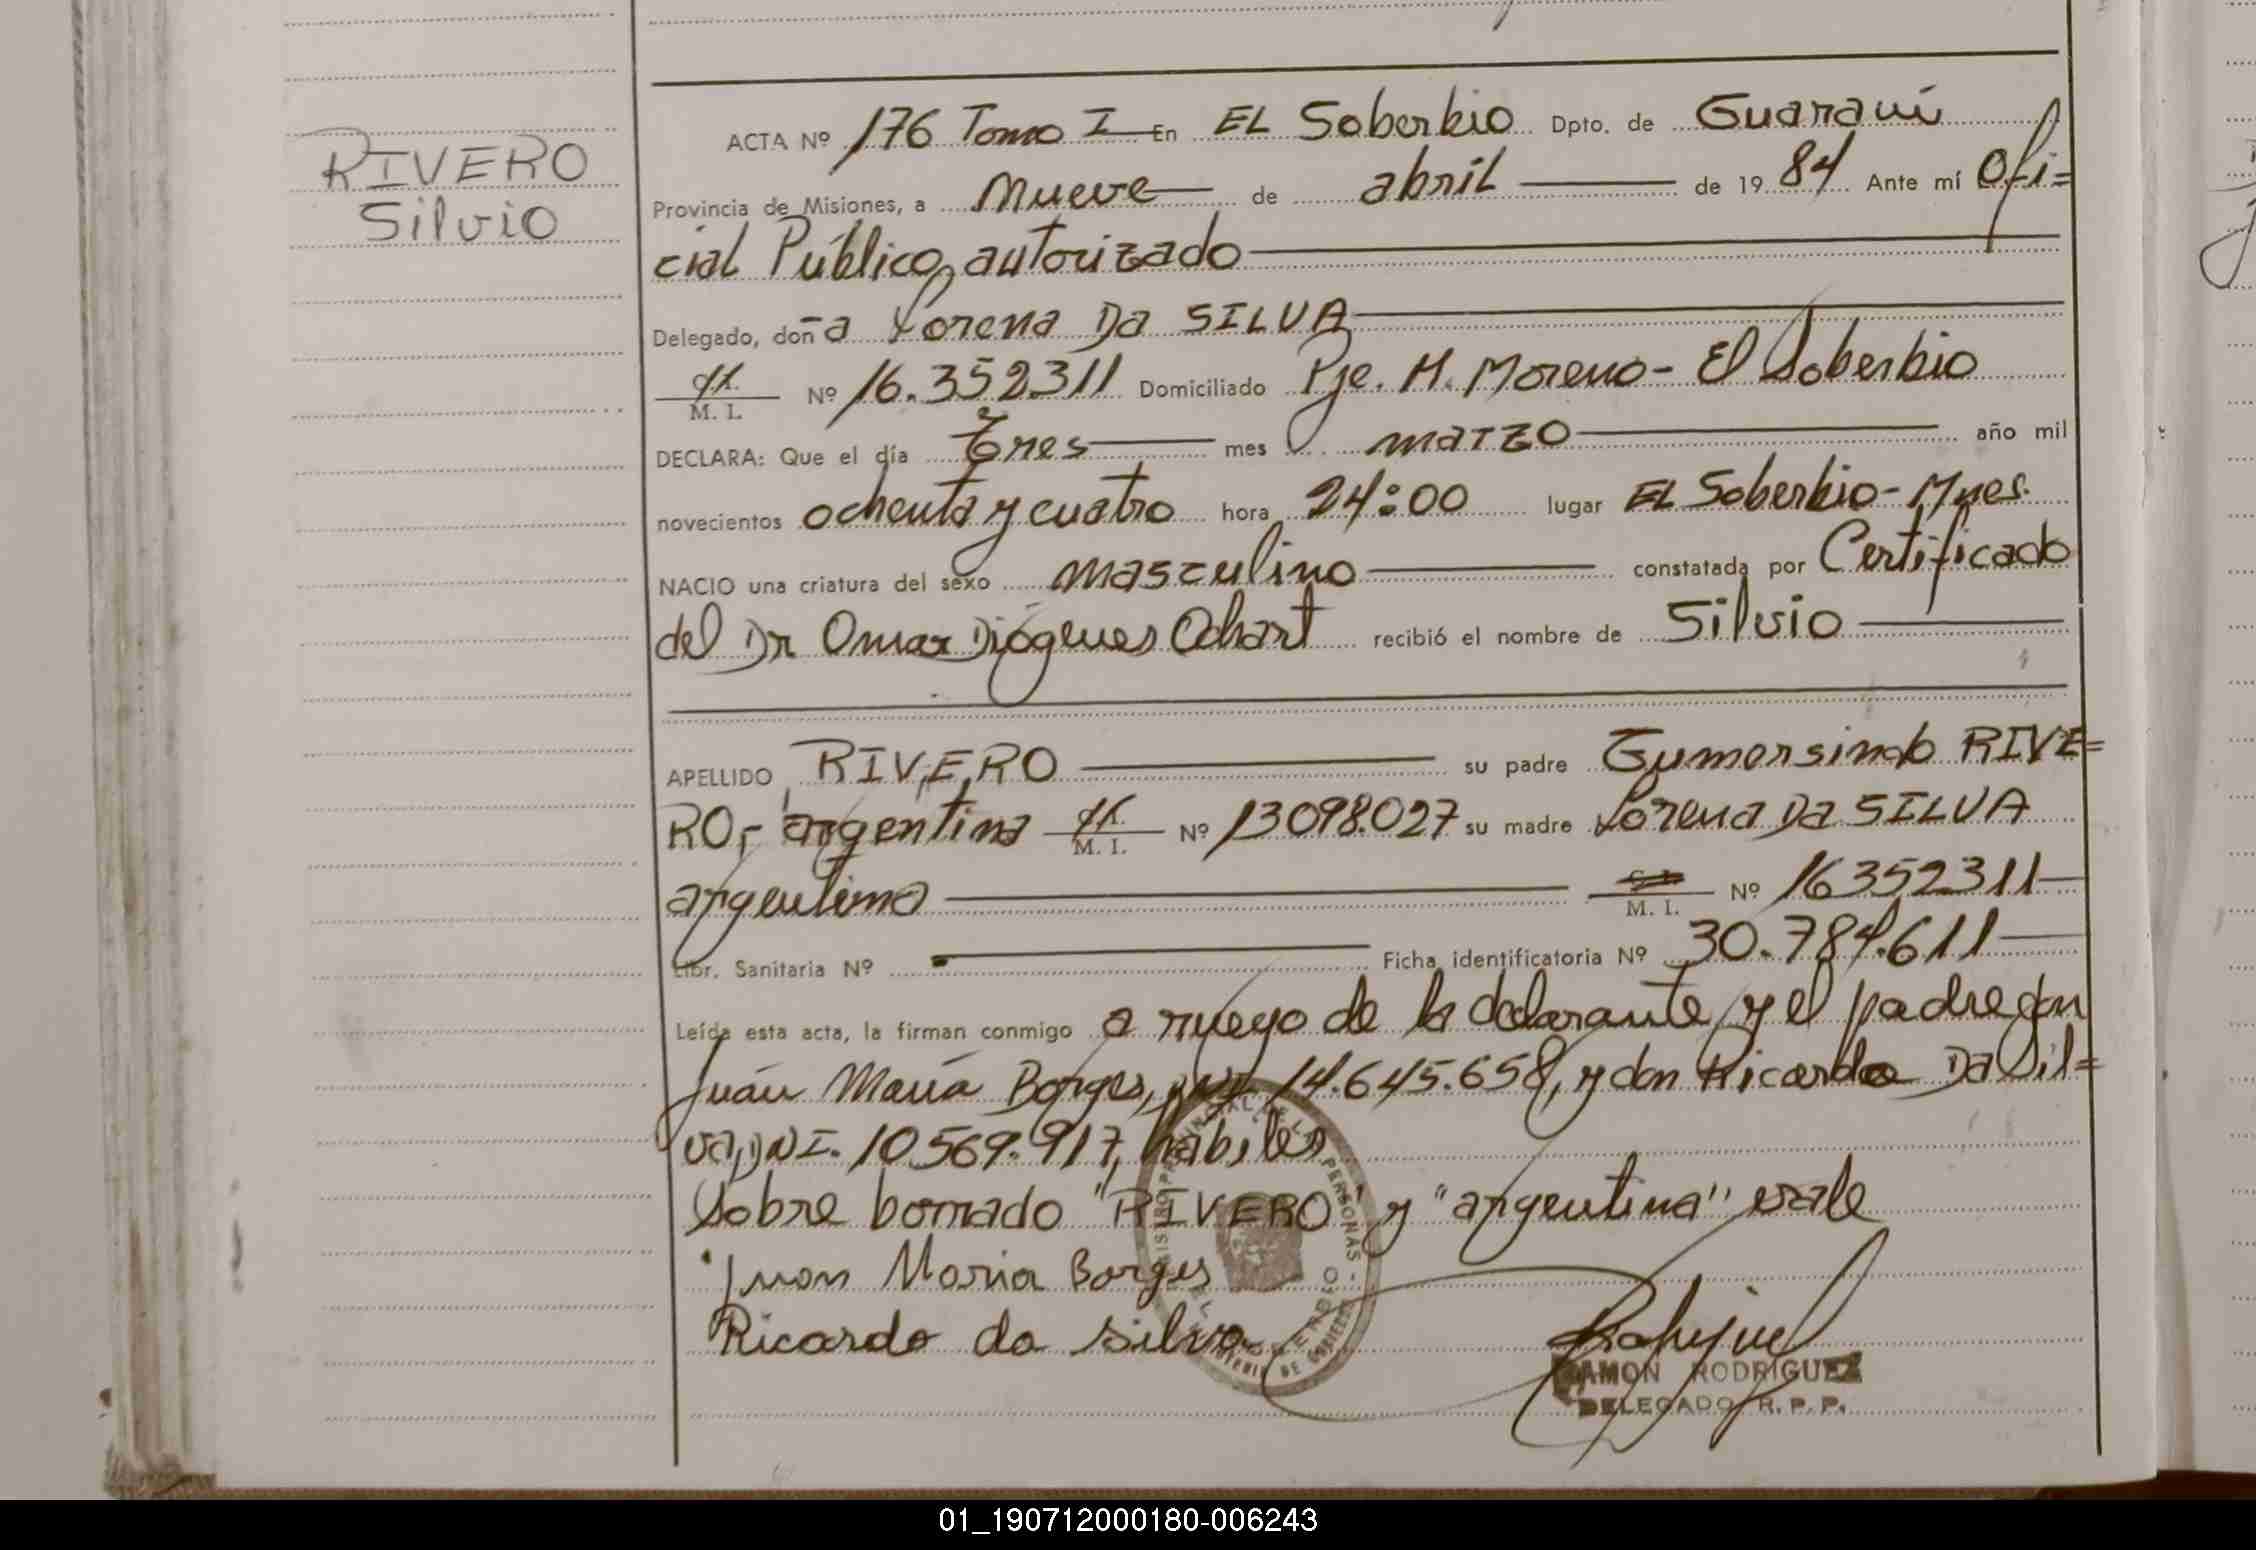 RIVERO
Silvio
ACTA Nº 176 Tomo I En EL Soberbio Dpto. de Guaraní
Provincia de Misiones, a nueve de abril de 1984 Ante mí Ofi=
cial Público autorizado
Delegado, doña Lorena Da SILVA
M. I. Nº 16.352311 Domiciliado Pje. M. Moreno - El Soberbio
DECLARA: Que el día tres mes marzo año mil
novecientos ochenta y cuatro hora 24:00 lugar EL Soberbio - Mnes.
NACIO una criatura del sexo masculino constatada por Certificado
del Dr Omar Diógenes Ochart recibió el nombre de Silvio
APELLIDO RIVERO su padre Gumersindo RIVE=
RO, argentina M. I. Nº 13098.027 su madre Lorena Da SILVA
argentina M. I. Nº 16352311
Libr. Sanitaria Nº Ficha identificatoria Nº 30.784.611
Leída esta acta, la firman conmigo a ruego de la declarante y el padre don
Juan María Borges, DNI 14.645.658, y don Ricardo Da Sil=
va, DNI. 10569.917, habiles
Sobre borrado "RIVERO" y "argentina" vale
Juan Maria Borges
Ricardo da silva
RAMON RODRIGUEZ
DELEGADO R. P. P.
01_190712000180-006243